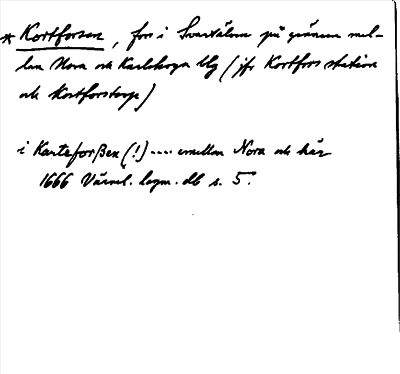 * Kortforsen, fors i Svartälven på gränsen mel-
lan Nora och Karlskoga bg (jfr Kortfors station
och Kortforstorp)
i Karteforßen (!) .... emellan Nora och här
1666 Värml. lagm. db s. 5.